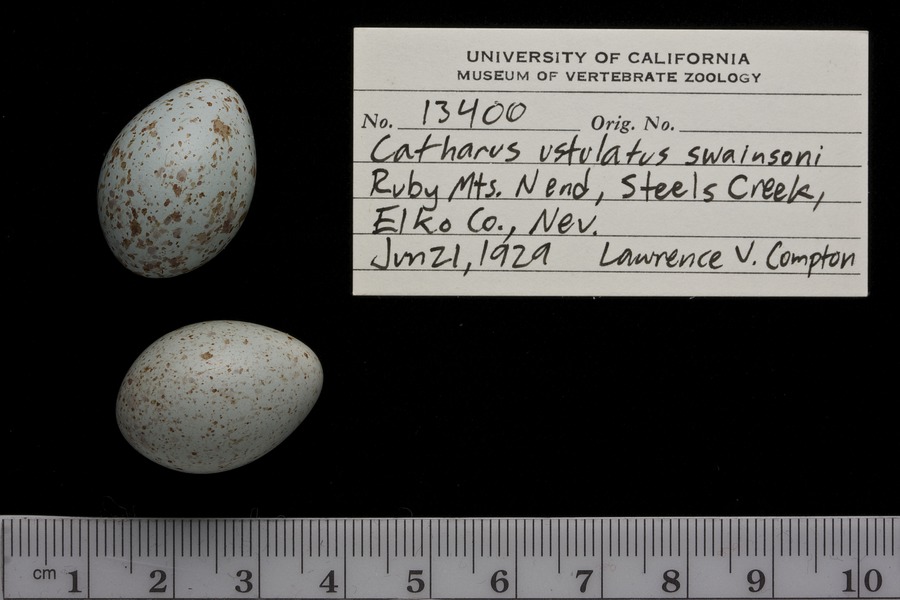 UNIVERSITY OF CALIFORNIA
MUSEUM OF VERTEBRATE ZOOLOGY
No. 13400 Orig. No.
Catharus ustulatus swainsoni
Ruby Mts. N end, Steels Creek,
Elko Co., Nev.
Jun 21, 1929 Lawrence V. Compton
cm 1 2 3 4 5 6 7 8 9 10